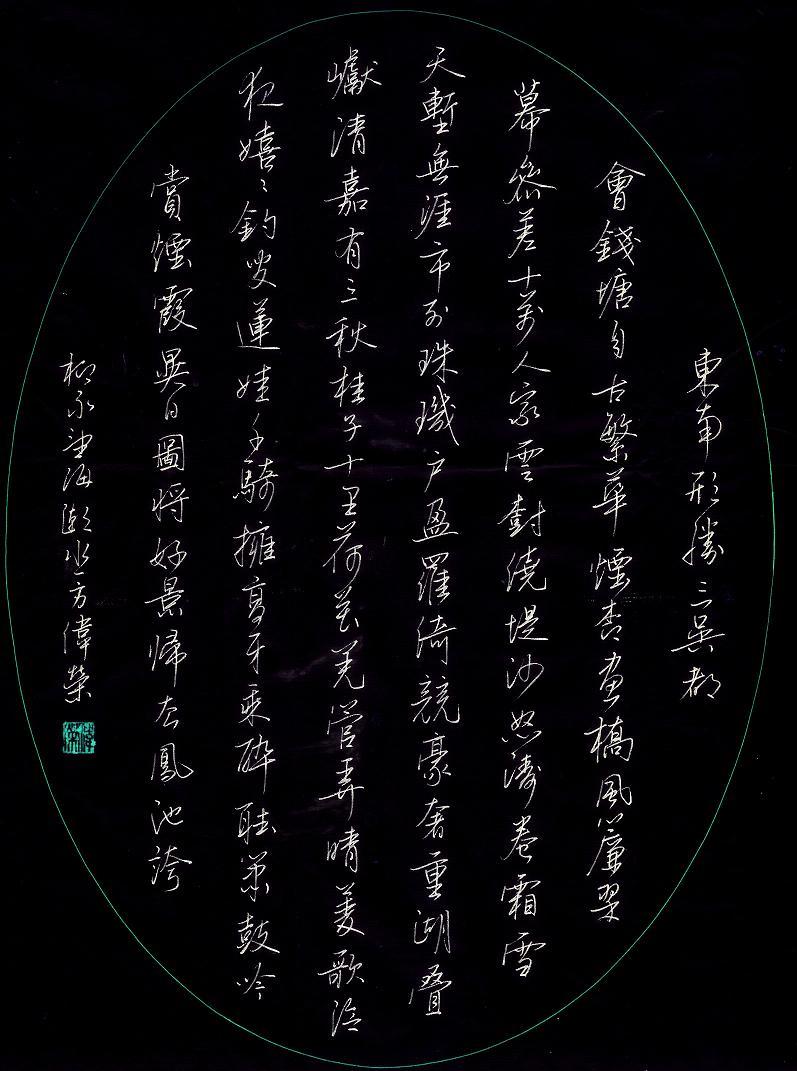 東南形勝三吳都
會錢塘自古繁華煙杏畫橋風簾翠
幕參差十萬人家雲樹繞堤沙怒濤卷霜雪
天塹無涯市列珠璣戶盈羅綺競豪奢重湖疊
巘清嘉有三秋桂子十里荷花羌管弄晴菱歌泛
夜嬉〻釣叟蓮娃千騎擁高牙乘醉聽簫鼓吟
賞煙霞異日圖將好景歸去鳳池誇
柳永望海潮水一方偉榮